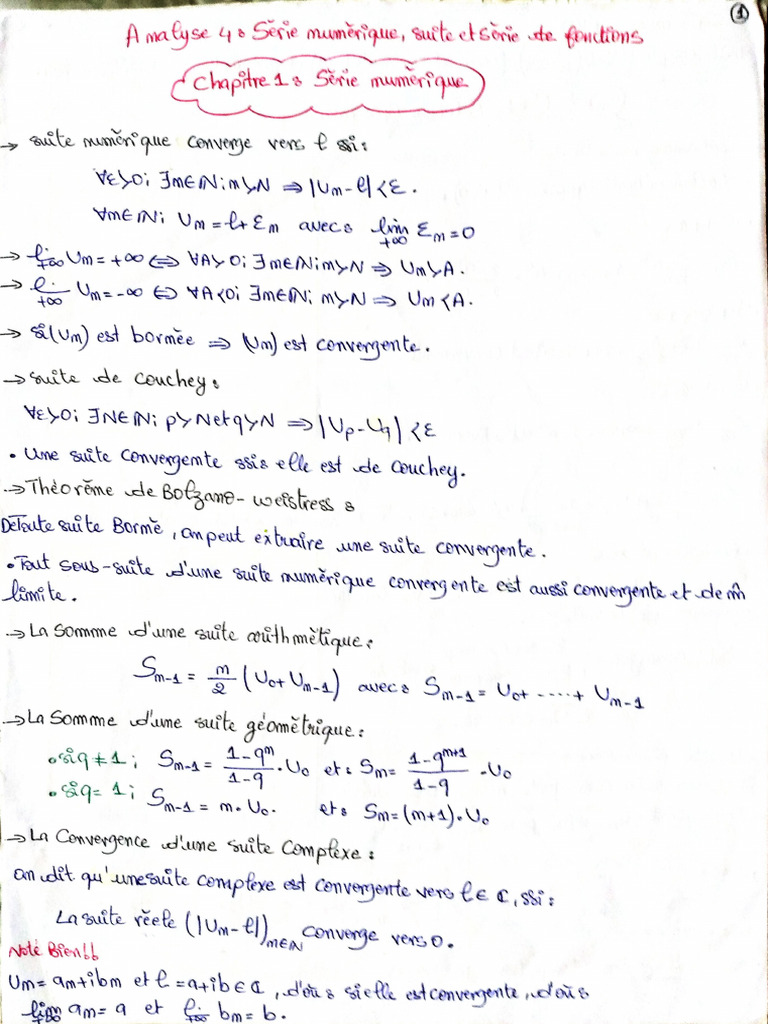 ①
Analyse 4 : Série numérique, suite et série de fonctions
Chapitre 1 : Série numérique
→ suite numérique converge vers l ssi :
∀ε>0 ; ∃n∈ℕ ; n>N ⇒ |Un-l|<ε.
∀n∈ℕ ; Un = l+εn avec : lim +∞ εn = 0
→ lim +∞ Un = +∞ ⇔ ∀A>0 ; ∃n∈ℕ ; n>N ⇒ Un>A.
→ lim +∞ Un = -∞ ⇔ ∀A<0 ; ∃n∈ℕ ; n>N ⇒ Un<A.
→ si (Un) est bornée ⇒ (Un) est convergente.
→ suite de couchey :
∀ε>0 ; ∃N∈ℕ ; p>N et q>N ⇒ |Up-Uq|<ε
• Une suite convergente ssi : elle est de couchey.
→ Théorème de Bolzano-weistress :
De Toute suite Borné, on peut extraire une suite convergente.
• Tout sous-suite d'une suite numérique convergente est aussi convergente et de m̂
limite.
→ La somme d'une suite arithmétique :
Sn-1 = n/2 (U0+Un-1) avec : Sn-1 = U0+ ----- + Un-1
→ La somme d'une suite géométrique :
• si q≠1 ; Sn-1 = (1-qⁿ)/(1-q) · U0 et : Sn = (1-qⁿ⁺¹)/(1-q) · U0
• si q=1 ; Sn-1 = n · U0. et : Sn = (n+1) · U0
→ La Convergence d'une suite Complexe :
On dit qu'une suite complexe est convergente vers l∈ℂ, ssi :
La suite réele (|Un-l|)n∈ℕ converge vers 0.
Noté Bien!!
Un = an+ibn et l = a+ib∈ℂ, d'où : si elle est convergente, d'où :
lim +∞ an = a et lim +∞ bn = b.